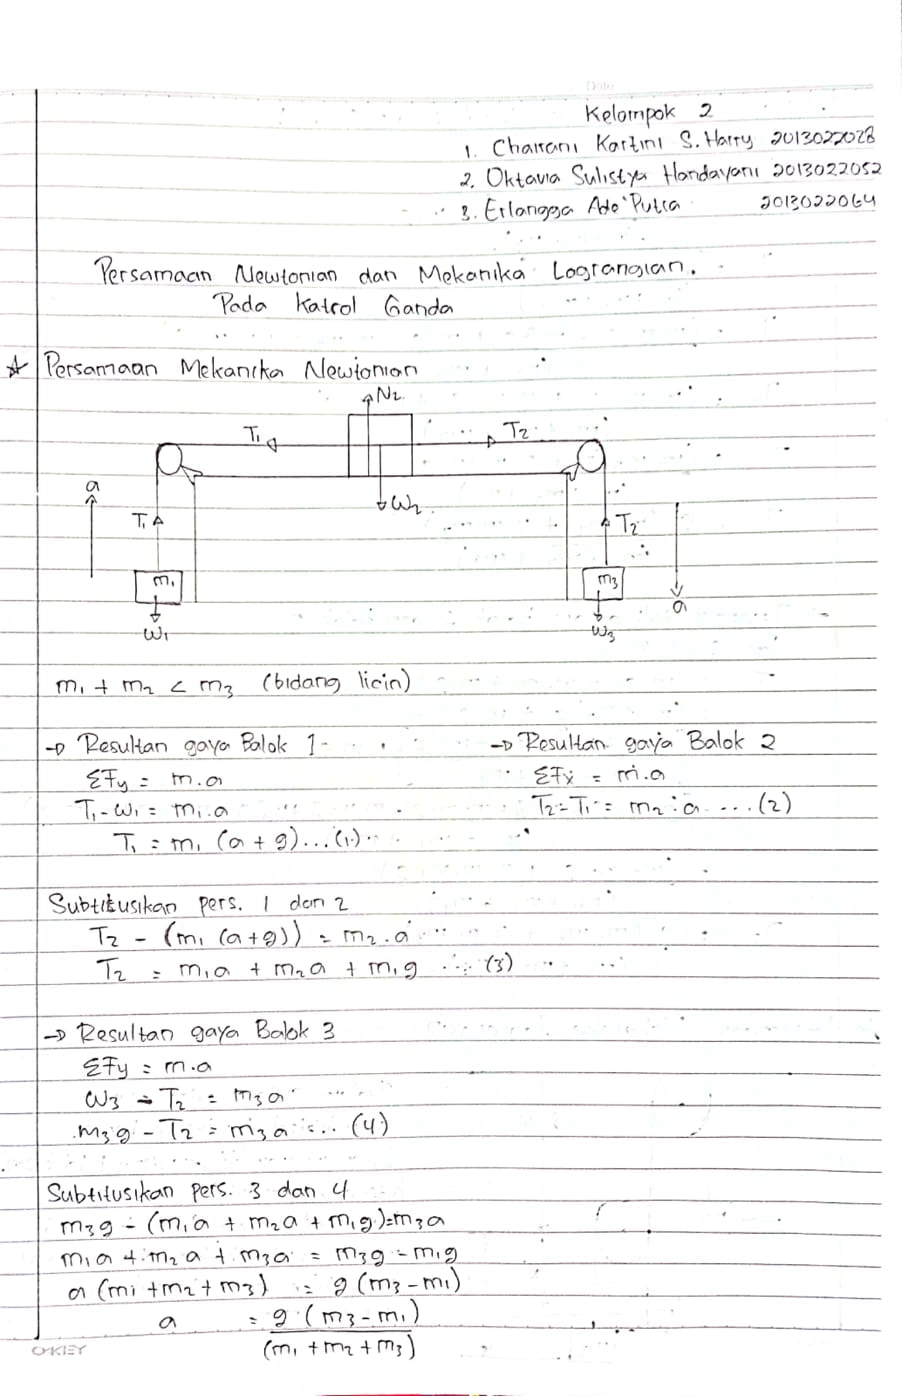 Date
Kelompok 2
1. Chairani Kartini S. Harry 2013022028
2. Oktavia Sulistya Handayani 2013022052
3. Erlangga Ade Putra 2013022064
Persamaan Newtonian dan Mekanika Lograngian.
Pada Katrol Ganda
☆ Persamaan Mekanika Newtonian
N2
T1 T2
a W2
T1 T2
m1 m3
a
W1 W3
m1 + m2 < m3 (bidang licin)
→ Resultan gaya Balok 1 → Resultan gaya Balok 2
ΣFy = m.a ΣFx = m.a
T1 - W1 = m1.a T2 - T1 = m2.a ...(2)
T1 = m1 (a + g)...(1)
Subtitusikan pers. 1 dan 2
T2 - (m1 (a+g)) = m2.a
T2 = m1a + m2a + m1g ...(3)
→ Resultan gaya Balok 3
ΣFy = m.a
W3 - T2 = m3a
m3g - T2 = m3a ...(4)
Subtitusikan pers. 3 dan 4
m3g - (m1a + m2a + m1g) = m3a
m1a + m2a + m3a = m3g - m1g
a (m1 + m2 + m3) = g (m3 - m1)
a = g (m3 - m1)
(m1 + m2 + m3)
OKEY